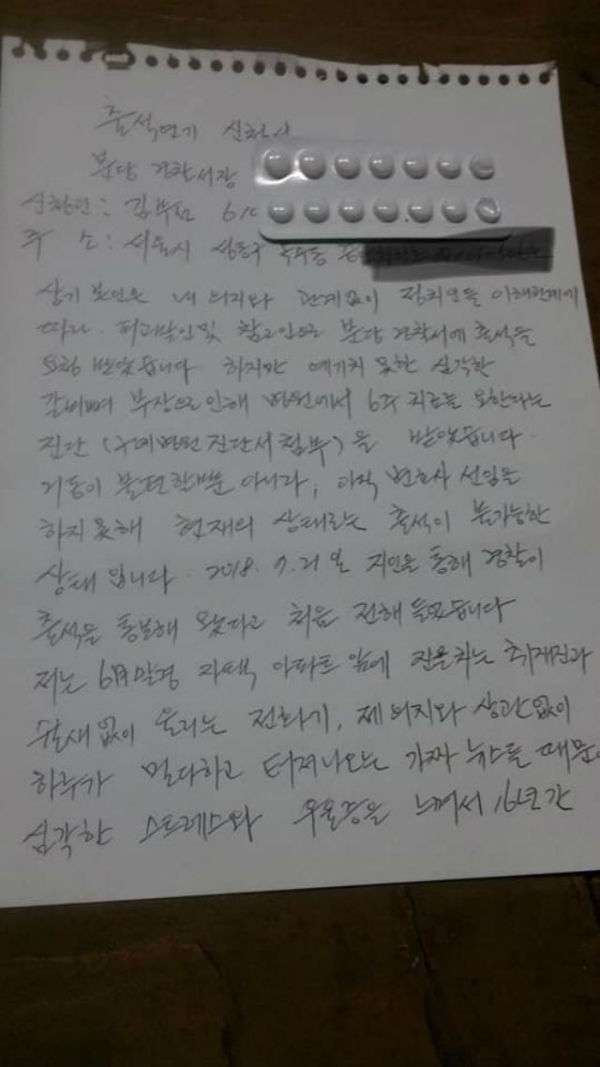 출석연기 신청서
분당 경찰서장
신청인 : 김부선 61
주 소 : 서울시 성동구 옥수동
상기 본인은 내 의지와 관계없이 정치인들 이해관계에
따라. 피고발인 및 참고인으로 분당 경찰서에 출석을
요청 받았습니다 하지만 예기치 못한 심각한
갈비뼈 부상으로 인해 병원에서 6주 치료를 요한다는
진단 (구례병원 진단서 첨부) 을 받았습니다.
거동이 불편할뿐 아니라, 아직 변호사 선임을
하지 못해 현재의 상태로는 출석이 불가능한
상태 입니다. 2018. 7. 21 일 지인을 통해 경찰이
출석을 통보해 왔다고 처음 전해 들었습니다
저는 6月말경 자택 아파트 앞에 진을치는 취재진과
쉴새없이 울리는 전화기, 제 의지와 상관없이
하루가 멀다하고 터져나오는 가짜 뉴스들 때문에
심각한 스트레스와 우울증을 느껴서 16년간